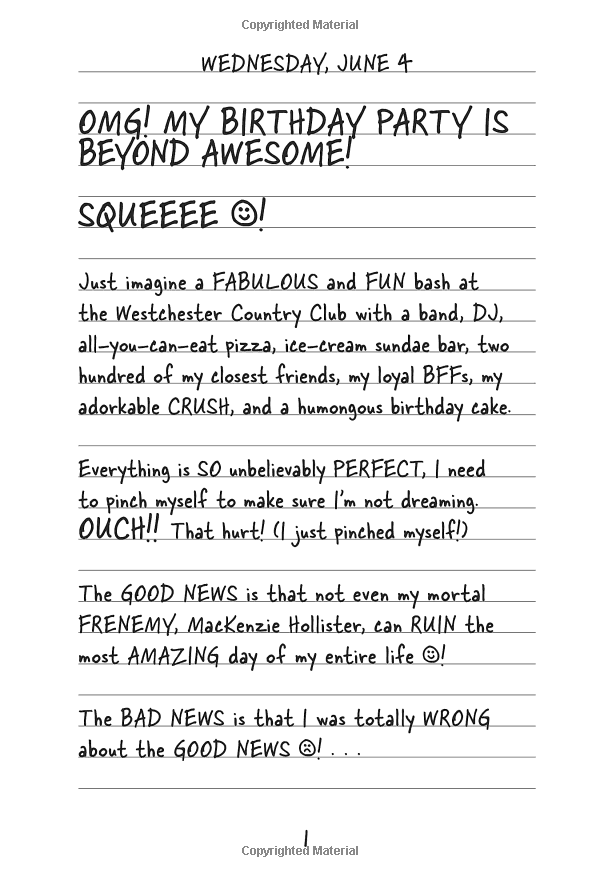 Copyrighted Material
WEDNESDAY, JUNE 4
OMG! MY BIRTHDAY PARTY IS
BEYOND AWESOME!
SQUEEEE ☺!
Just imagine a FABULOUS and FUN bash at
the Westchester Country Club with a band, DJ,
all-you-can-eat pizza, ice-cream sundae bar, two
hundred of my closest friends, my loyal BFFs, my
adorkable CRUSH, and a humongous birthday cake.
Everything is SO unbelievably PERFECT, I need
to pinch myself to make sure I'm not dreaming.
OUCH!! That hurt! (I just pinched myself!)
The GOOD NEWS is that not even my mortal
FRENEMY, MacKenzie Hollister, can RUIN the
most AMAZING day of my entire life ☺!
The BAD NEWS is that I was totally WRONG
about the GOOD NEWS ☹! . . .
1
Copyrighted Material